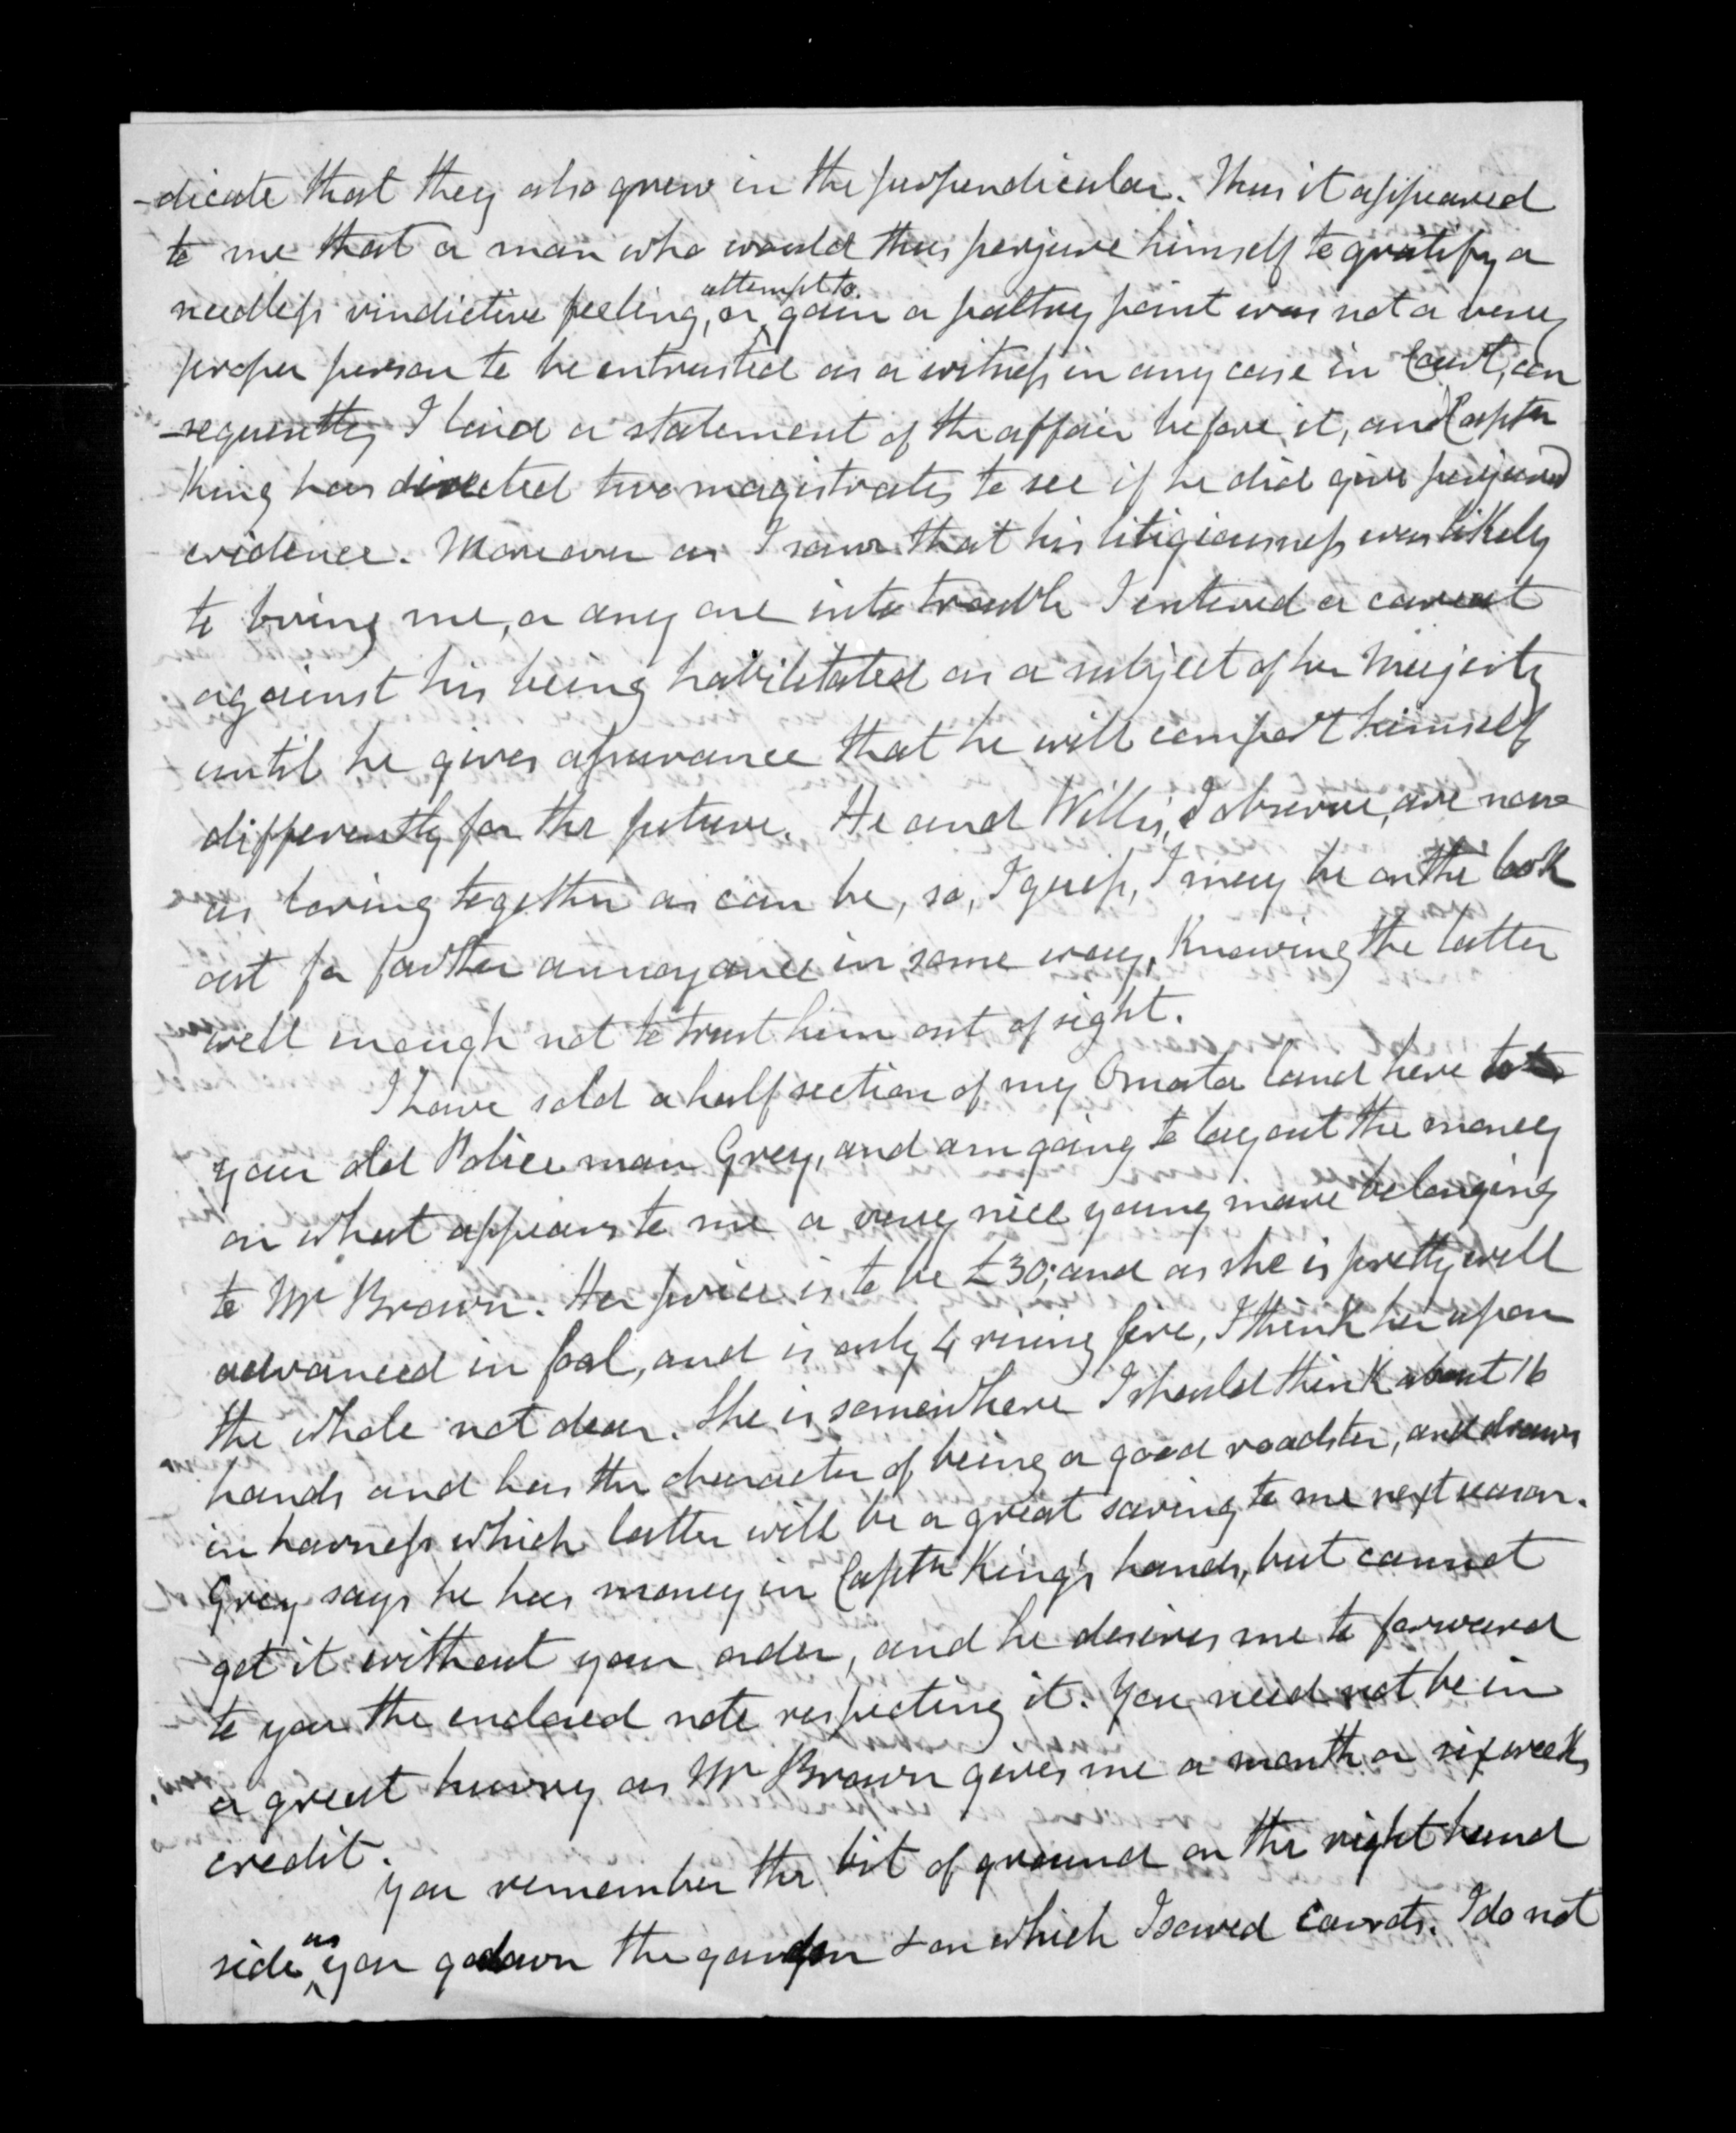 -dicate that they also grew in the perpendicular. Thus it appeared
to me that a man who would thus perjure himself to gratify a
needless vindictive feeling, or attempt to gain a paltry point was not a very
proper person to be entrusted as a witness in any case in Court, con
-sequently I laid a statement of the affair before it, and Captn
King has directed two magistrates to see if he did give perjured
evidence. Moreover as I saw that his litigiousness was likely
to bring me, or any one into trouble I entered a caveat
against his being habilitated as a subject of her Majesty
until he gives assurance that he will comport himself
differently for the future. He and Willis, I observe, are now
as loving together as can be, so, I guess, I may be on the look
out for further annoyance in some way, knowing the latter
well enough not to trust him out of sight.
I have sold a half section of my Omata land here to
your old Police man Grey, and am going to lay out the money
on what appears to me a very nice young mare belonging
to Mr Brown. Her price is to be £30; and as she is pretty well
advanced in foal, and is only 4 rising five, I think her upon
the whole not dear. She is somewhere I should think about 16
hands and has the character of being a good roadster, and draws
in harness which latter will be a great saving to me next season.
Grey says he has money in Captn King's hands, but cannot
get it without your order, and he desires me to forward
to you the enclosed note respecting it. You need not be in
a great hurry as Mr Brown gives me a month or six weeks
credit.
You remember the bit of ground on the right hand
side as you go down the garden & on which I sowed Carrots. I do not